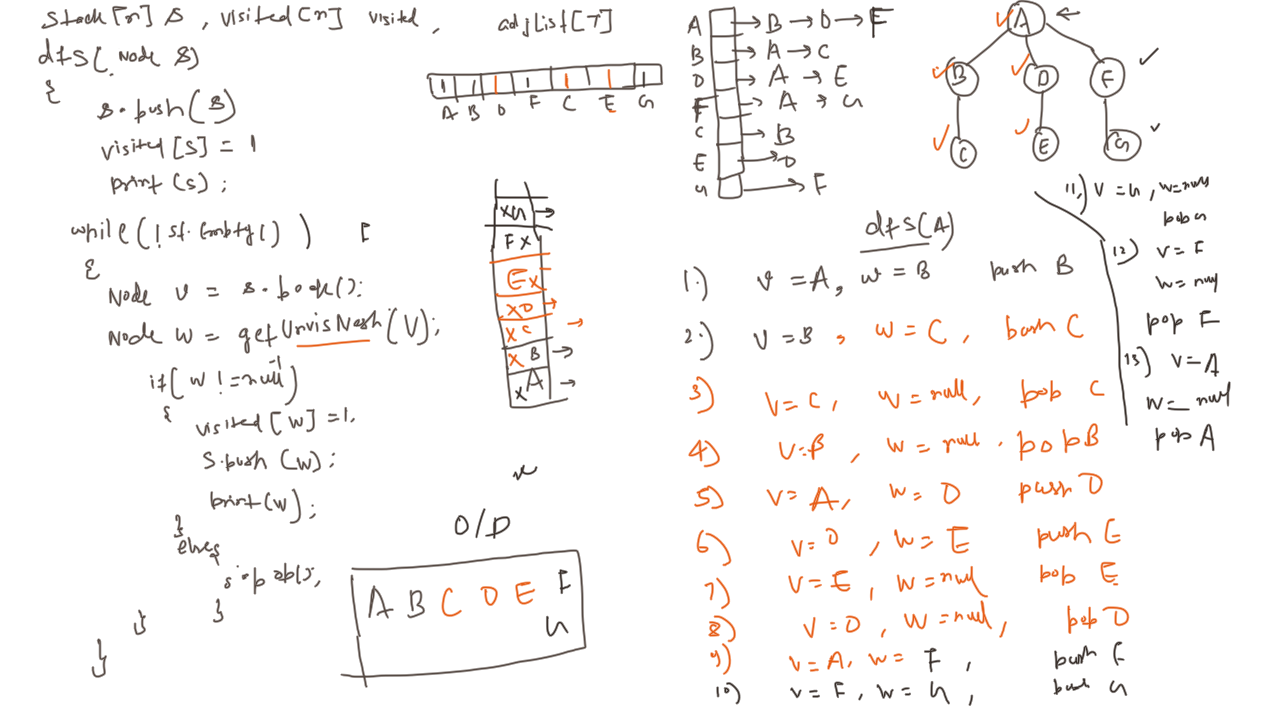 Stack[n] S , visited[n] visited , adjList[7]
dfs( Node S)
{
s.push(s)
visited[s] = 1
print(s);
while(!st.Empty())
{
Node v = s.peek();
Node w = getUnvisNeigh(V);
if( w != null)
-1
{
visited[w] =1.
S.push (w);
print(w);
}
else{
s.pop();
}
}
}
1 1 1 1 1 1 1
A B D F C E G
XG →
F X
E X
X D →
X C →
X B →
X A →
O/P
A B C D E F
G
A → B → D → F
B → A → C
D → A → E
F → A → G
C → B
E → D
G → F
A ←
B D F
C E G
dfs(A)
1.) V = A, w = B push B
2.) V = B , w = C, push C
3) V = C, W = null, pop C
4) V=B , w = null . pop B
5) V= A, W= D push D
6) V= D , W= E push E
7) V= E , W=null pop E
8) V = D , W = null, pop D
9) V= A, w= F , push F
10) V= F, w= G , push G
11,) V = G , w=null
pop G
12) V= F
W= null
pop F
13) V=A
W= null
pop A